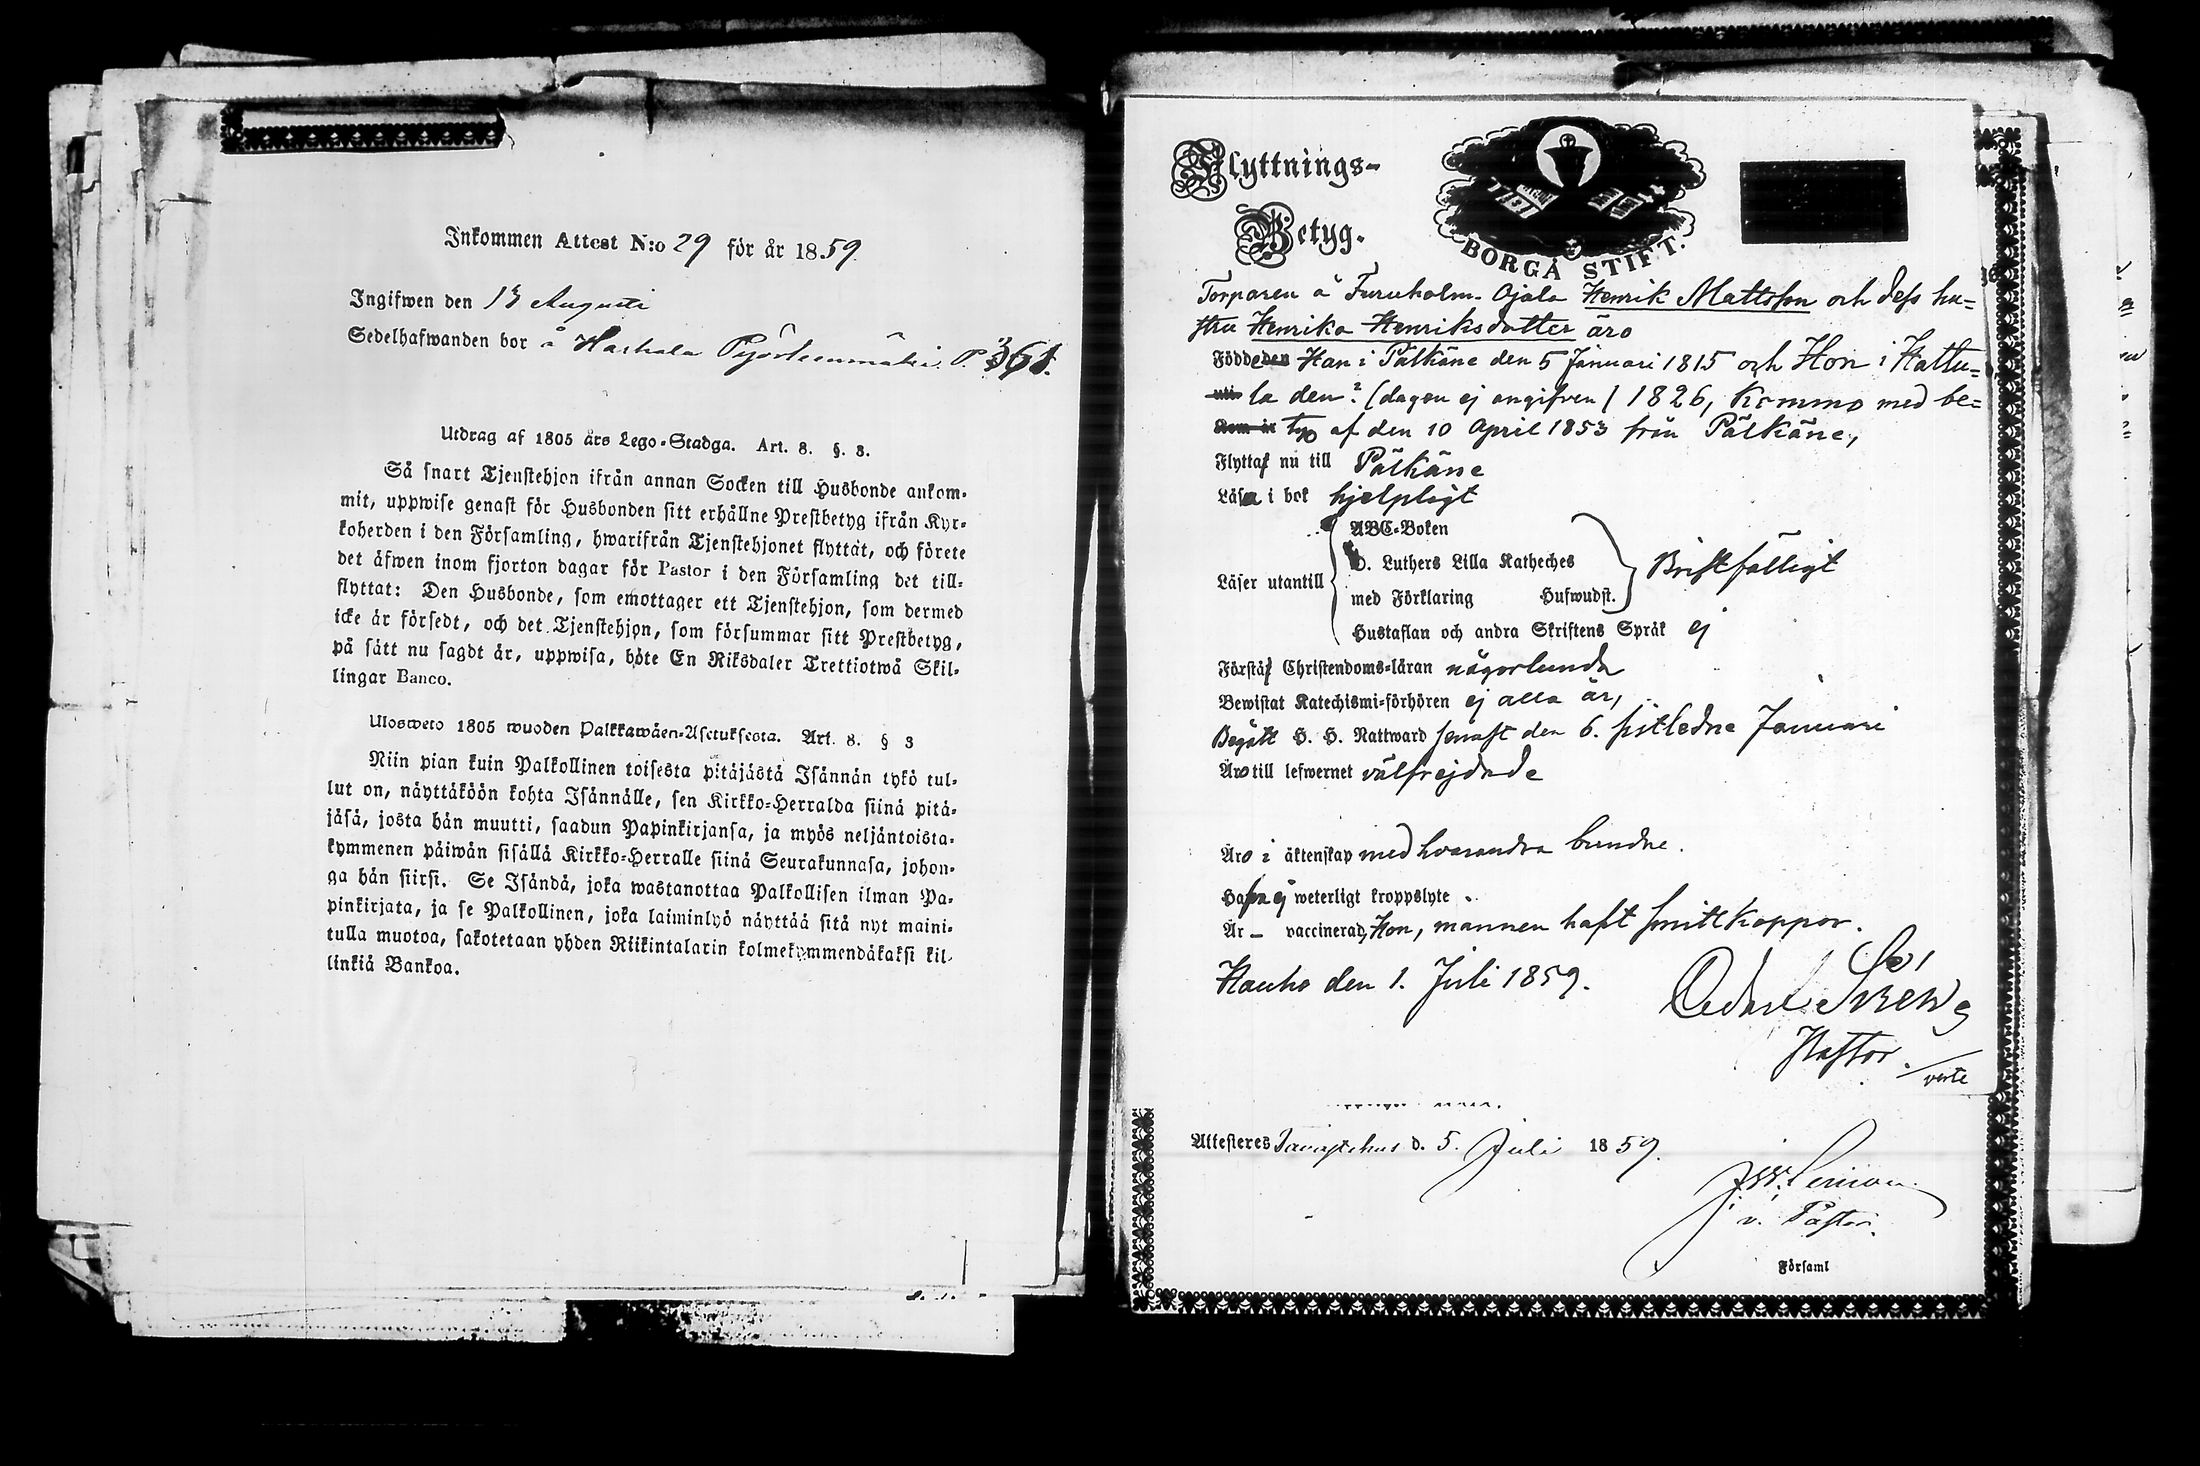 Inkommen Attest N:o 29 för år 1859.
Ingifwen den 13 Augusti
Sedelhafwanden bor å Harhala P. 361.
Utdrag af 1805 års Lego-Stadga. Art. 8. §. 3.
Så snart Tjenstehjon ifrån annan Socken till Husbonde ankom-
mit, uppwise genast för Husbonden sitt erhållne Prestbetyg ifrån Kyr-
koherden i den Församling, hwarifrån Tjenstehjonet flyttat, och förete
det äfwen inom fjorton dagar för Pastor i den Församling det till-
flyttat: Den Husbonde, som emottager ett Tjenstehjon, som dermed
icke är försedt, och det Tjenstehjon, som försummar sitt Prestbetyg,
på sätt nu sagdt är, uppwisa, böte En Riksdaler Trettiotwå Skil-
lingar Banco.
Ulosweto 1805 wuoden Palkkawäen-Asetuksesta. Art. 8. § 3
Niin pian kuin Palkollinen toisesta pitäjästä Isännän tykö tul-
lut on, näyttäköön kohta Isännälle, sen Kirkko-Herralda siinä pitä-
jäsä, josta hän muutti, saadun Papinkirjansa, ja myös neljäntoista-
kymmenen päiwän sisällä Kirkko-Herralle siinä Seurakunnasa, johon-
ga hän siirsi. Se Isändä, joka wastanottaa Palkollisen ilman Pa-
pinkirjata, ja se Palkollinen, joka laiminlyö näyttää sitä nyt maini-
tulla muotoa, sakotetaan yhden Riikintalarin kolmekymmendäkaksi kil-
linkiä Bankoa.
Flyttnings-
Betyg.
BORGÅ STIFT.
Torparen å Furuholm Ojala Henrik Mattsson och dess hu-
stru Henrika Henriksdotter äro
Födde den Han i Pälkäne den 5 Januari 1815 och Hon i Hattu-
la den ? (dagen ej angifven) 1826, komma med be-
tyg af den 10 April 1853 från Pälkäne,
Flytta nu till Pälkäne
Läsa i bok hjelpligt
Läser utantill
ABC-Boken
D. Luthers Lilla Katheches
med Förklaring Hufwudst.
Bristfälligt
Hustaflan och andra Skriftens Språk ej
Förstå Christendoms-läran någorlunda
Bewistat Katechismi-förhören ej alla år,
Begått H. H. Nattward senast den 6. sistledne Januari
Äro till lefwernet välfrejdade
Äro i äktenskap med hvarandra bundne.
Hafva ej weterligt kroppslyte.
Är - vaccinerad, Hon, mannen haft smittkoppor.
Hauho den 1. Juli 1859.
Pastor.
verte
Attesteres Tavastehus d. 5. Juli 1859.
v. Pastor.
Församl